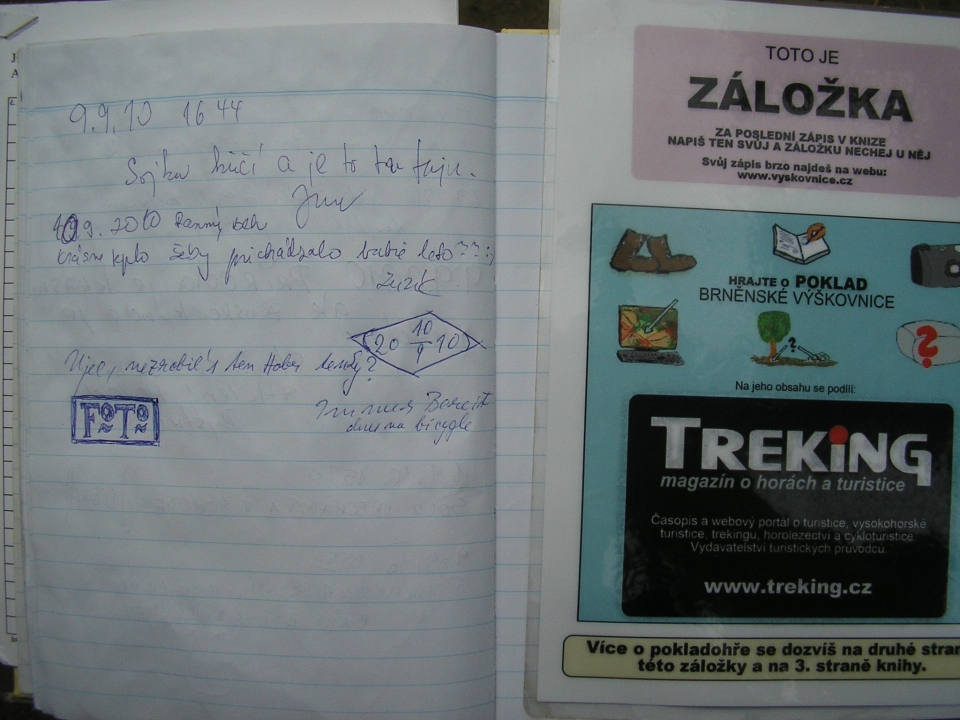 9.9.10 16 44
Sojka křičí a je to tu fajn.
10.9. 2010
krásne teplo žeby prichádzalo babie leto?? :)
Zuzik
20 10/9 10
Ujec, nezrobil's ten
FoTo
dnes na bicygle
TOTO JE
ZÁLOŽKA
ZA POSLEDNÍ ZÁPIS V KNIZE
NAPIŠ TEN SVŮJ A ZÁLOŽKU NECHEJ U NĚJ
Svůj zápis brzo najdeš na webu:
www.vyskovnice.cz
HRAJTE o POKLAD
BRNĚNSKÉ VÝŠKOVNICE
?
?
Na jeho obsahu se podílí:
TREKING
magazín o horách a turistice
Časopis a webový portál o turistice, vysokohorské
turistice, trekingu, horolezectví a cykloturistice
Vydavatelství turistických průvodců.
www.treking.cz
Více o pokladohře se dozvíš na druhé stran
této záložky a na 3. straně knihy.